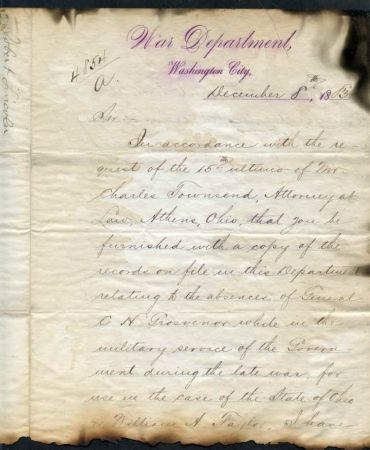 War Department,
Washington City,
4854
A.
December 8th, 18
Sir:—
In accordance with the re-
quest of the 15th ultimo of Mr
Charles Townsend, Attorney at
Law, Athens, Ohio, that you be
furnished with a copy of the
records on file in this Department
relating to the absences of General
C H Grosvenor while in the
military service of the Govern-
ment during the late war, for
use in the case of the State of Ohio
vs William A Taylor, I have